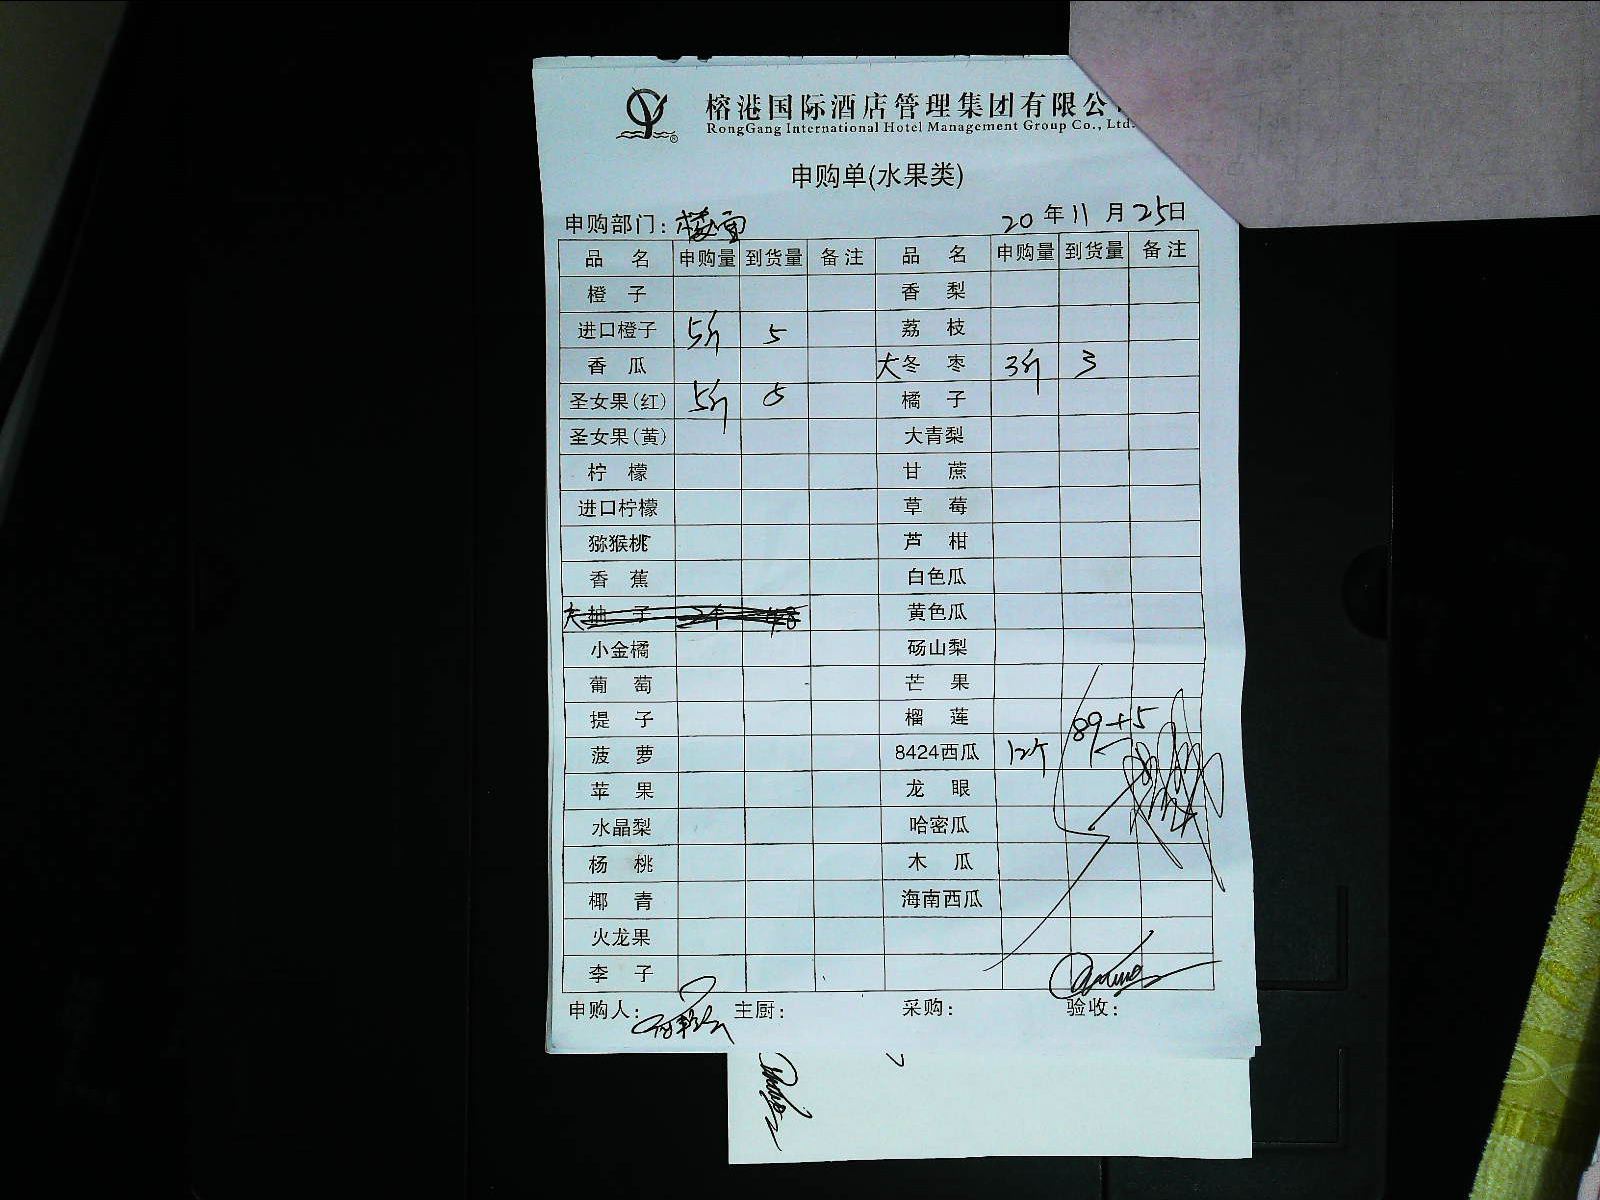 榕港国际酒店管理集团有限公
RongGang International Hotel Management Group Co., Ltd.
申购单(水果类)
申购部门: 楼面 20 年 11 月 25日
品 名 申购量 到货量 备注 品 名 申购量 到货量 备注
橙 子 香 梨
进口橙子 5斤 5 荔 枝
香 瓜 大冬 枣 3斤 3
圣女果(红) 5斤 5 橘 子
圣女果(黄) 大青梨
柠 檬 甘 蔗
进口柠檬 草 莓
猕猴桃 芦 柑
香 蕉 白色瓜
大柚 子 2个 黄色瓜
小金橘 砀山梨
葡 萄 芒 果
提 子 榴 莲
菠 萝 8424西瓜 12个 89+5
苹 果 龙 眼
水晶梨 哈密瓜
杨 桃 木 瓜
椰 青 海南西瓜
火龙果
李 子
申购人: 主厨: 采购: 验收: